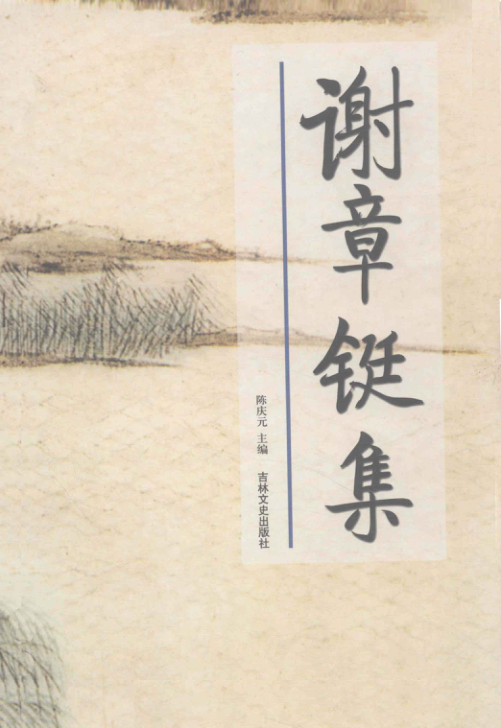 谢章铤集
陈庆元 主编 吉林文史出版社